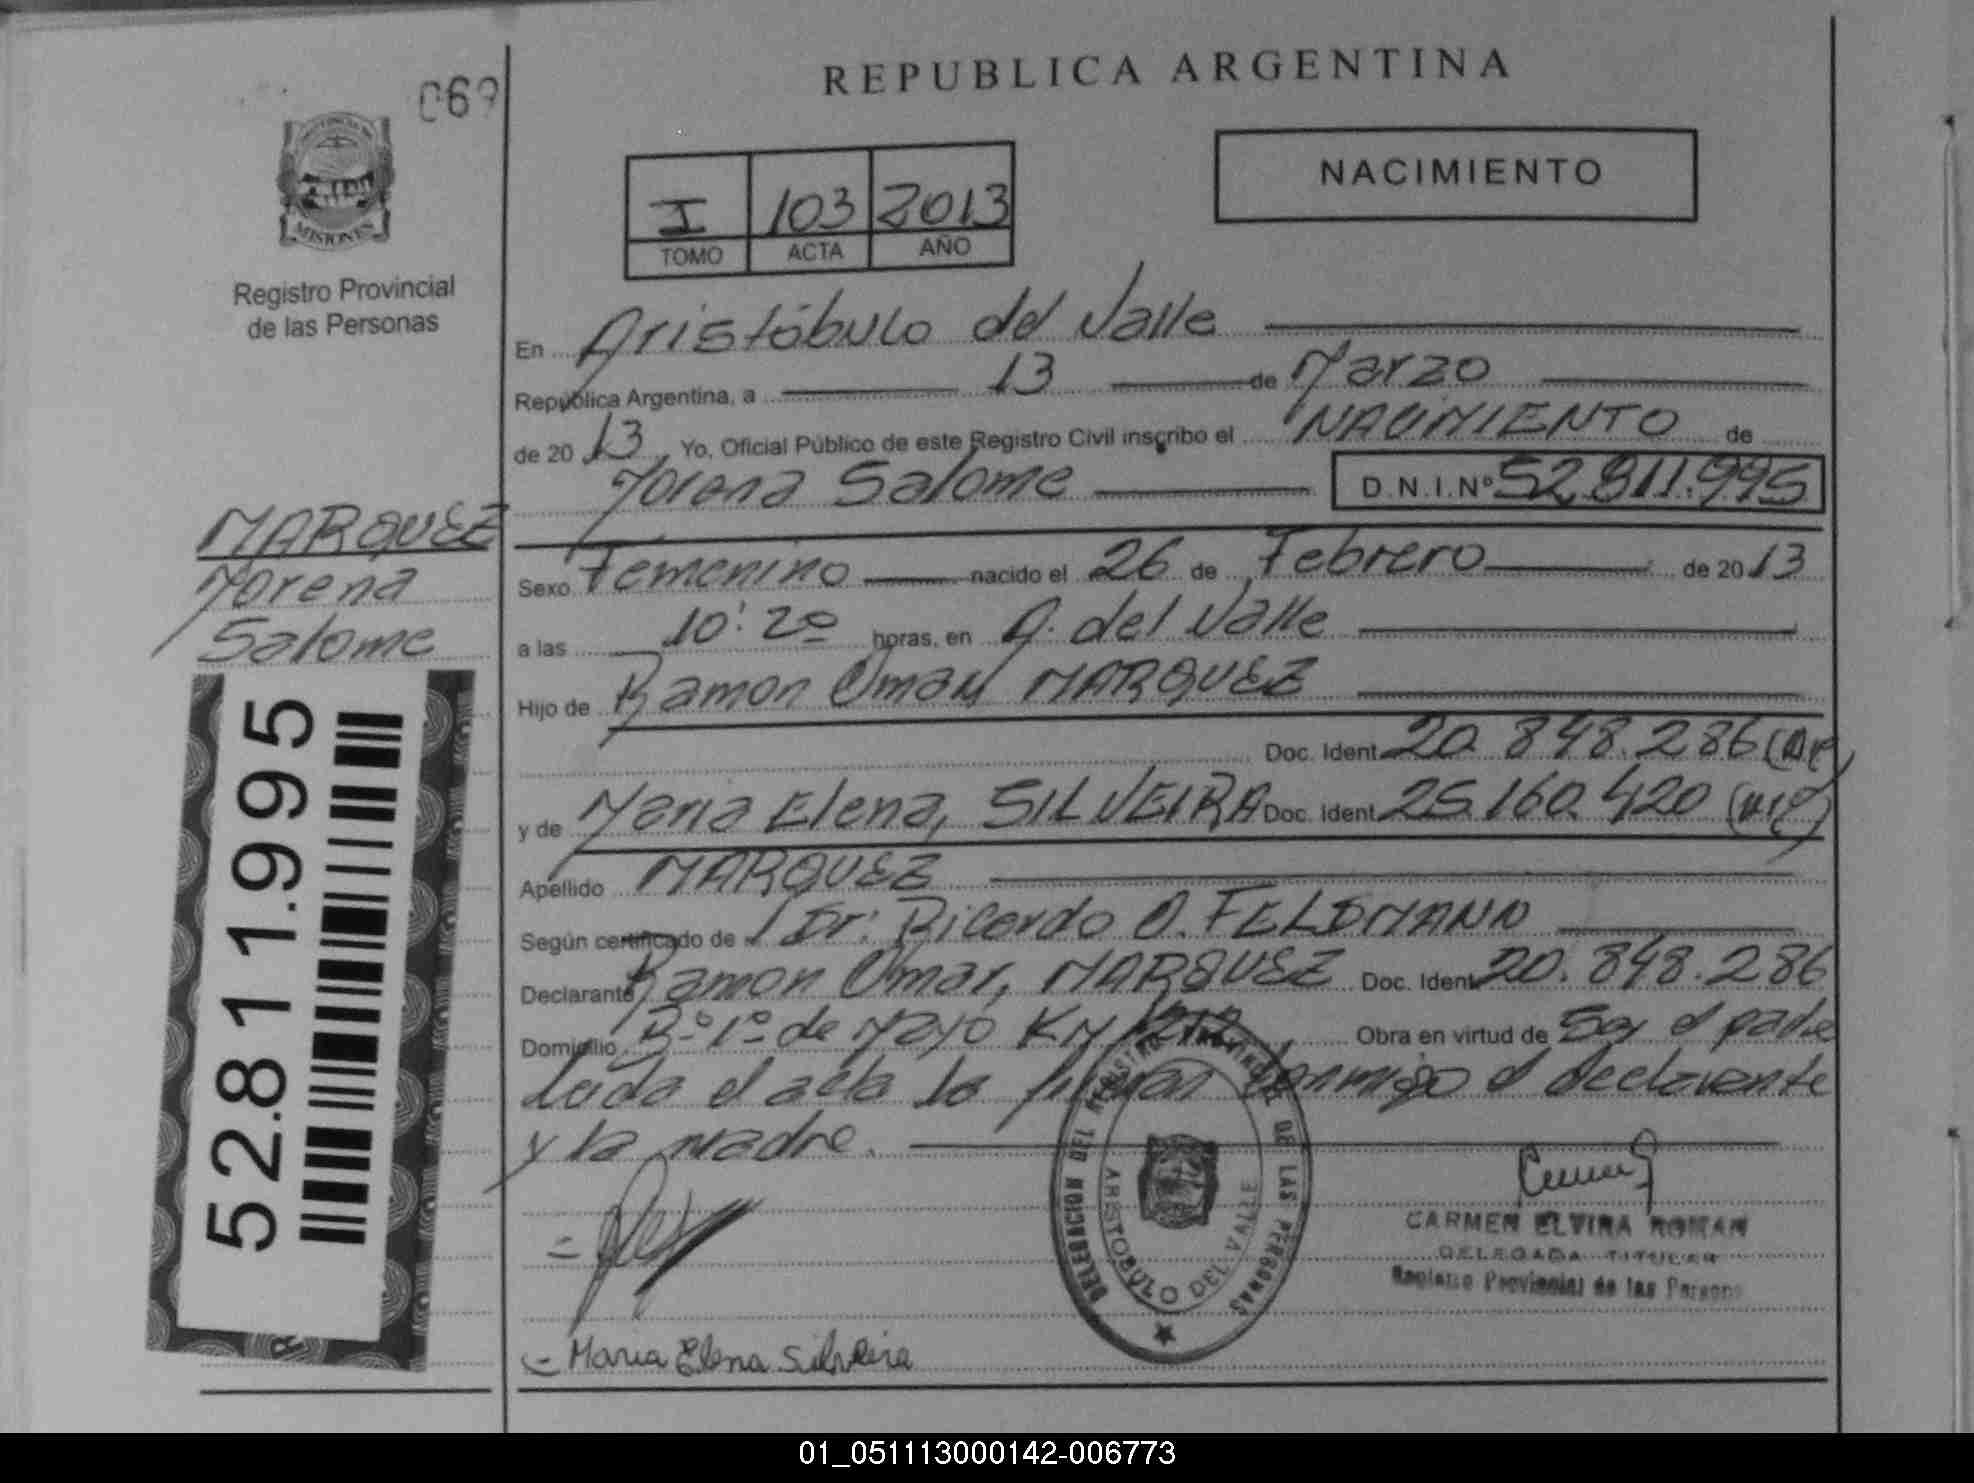 069
REPUBLICA ARGENTINA
MISIONES
Registro Provincial
de las Personas
I 103 2013
TOMO ACTA AÑO
NACIMIENTO
En Aristóbulo del Valle
República Argentina, a 13 de Marzo
de 20 13 Yo, Oficial Público de este Registro Civil inscribo el NACIMIENTO de
Morena Salome D.N.I.Nº 52.811.995
MARQUEZ
Morena
Salome
Sexo Femenino nacido el 26 de Febrero de 20 13
a las 10:20 horas, en A. del Valle
Hijo de Ramon Omar MARQUEZ
Doc. Ident 20.848.286
y de Maria Elena, SILVEIRA Doc. Ident 25.160.420
Apellido MARQUEZ
Según certificado de Dr. Ricardo O. FELDMANN
Declarante Ramon Omar, MARQUEZ Doc. Ident 20.848.286
Domicilio Bº 1º de Mayo KM 1212 Obra en virtud de Ser el padre
Leida el acta la firman conmigo el declarante
y la madre.
52.811.995
DELEGACION DEL REGISTRO PROVINCIAL DE LAS PERSONAS
ARISTOBULO DEL VALLE
CARMEN ELVIRA ROMAN
DELEGADA TITULAR
Registro Provincial de las Persons
Maria Elena Silveira
01_051113000142-006773